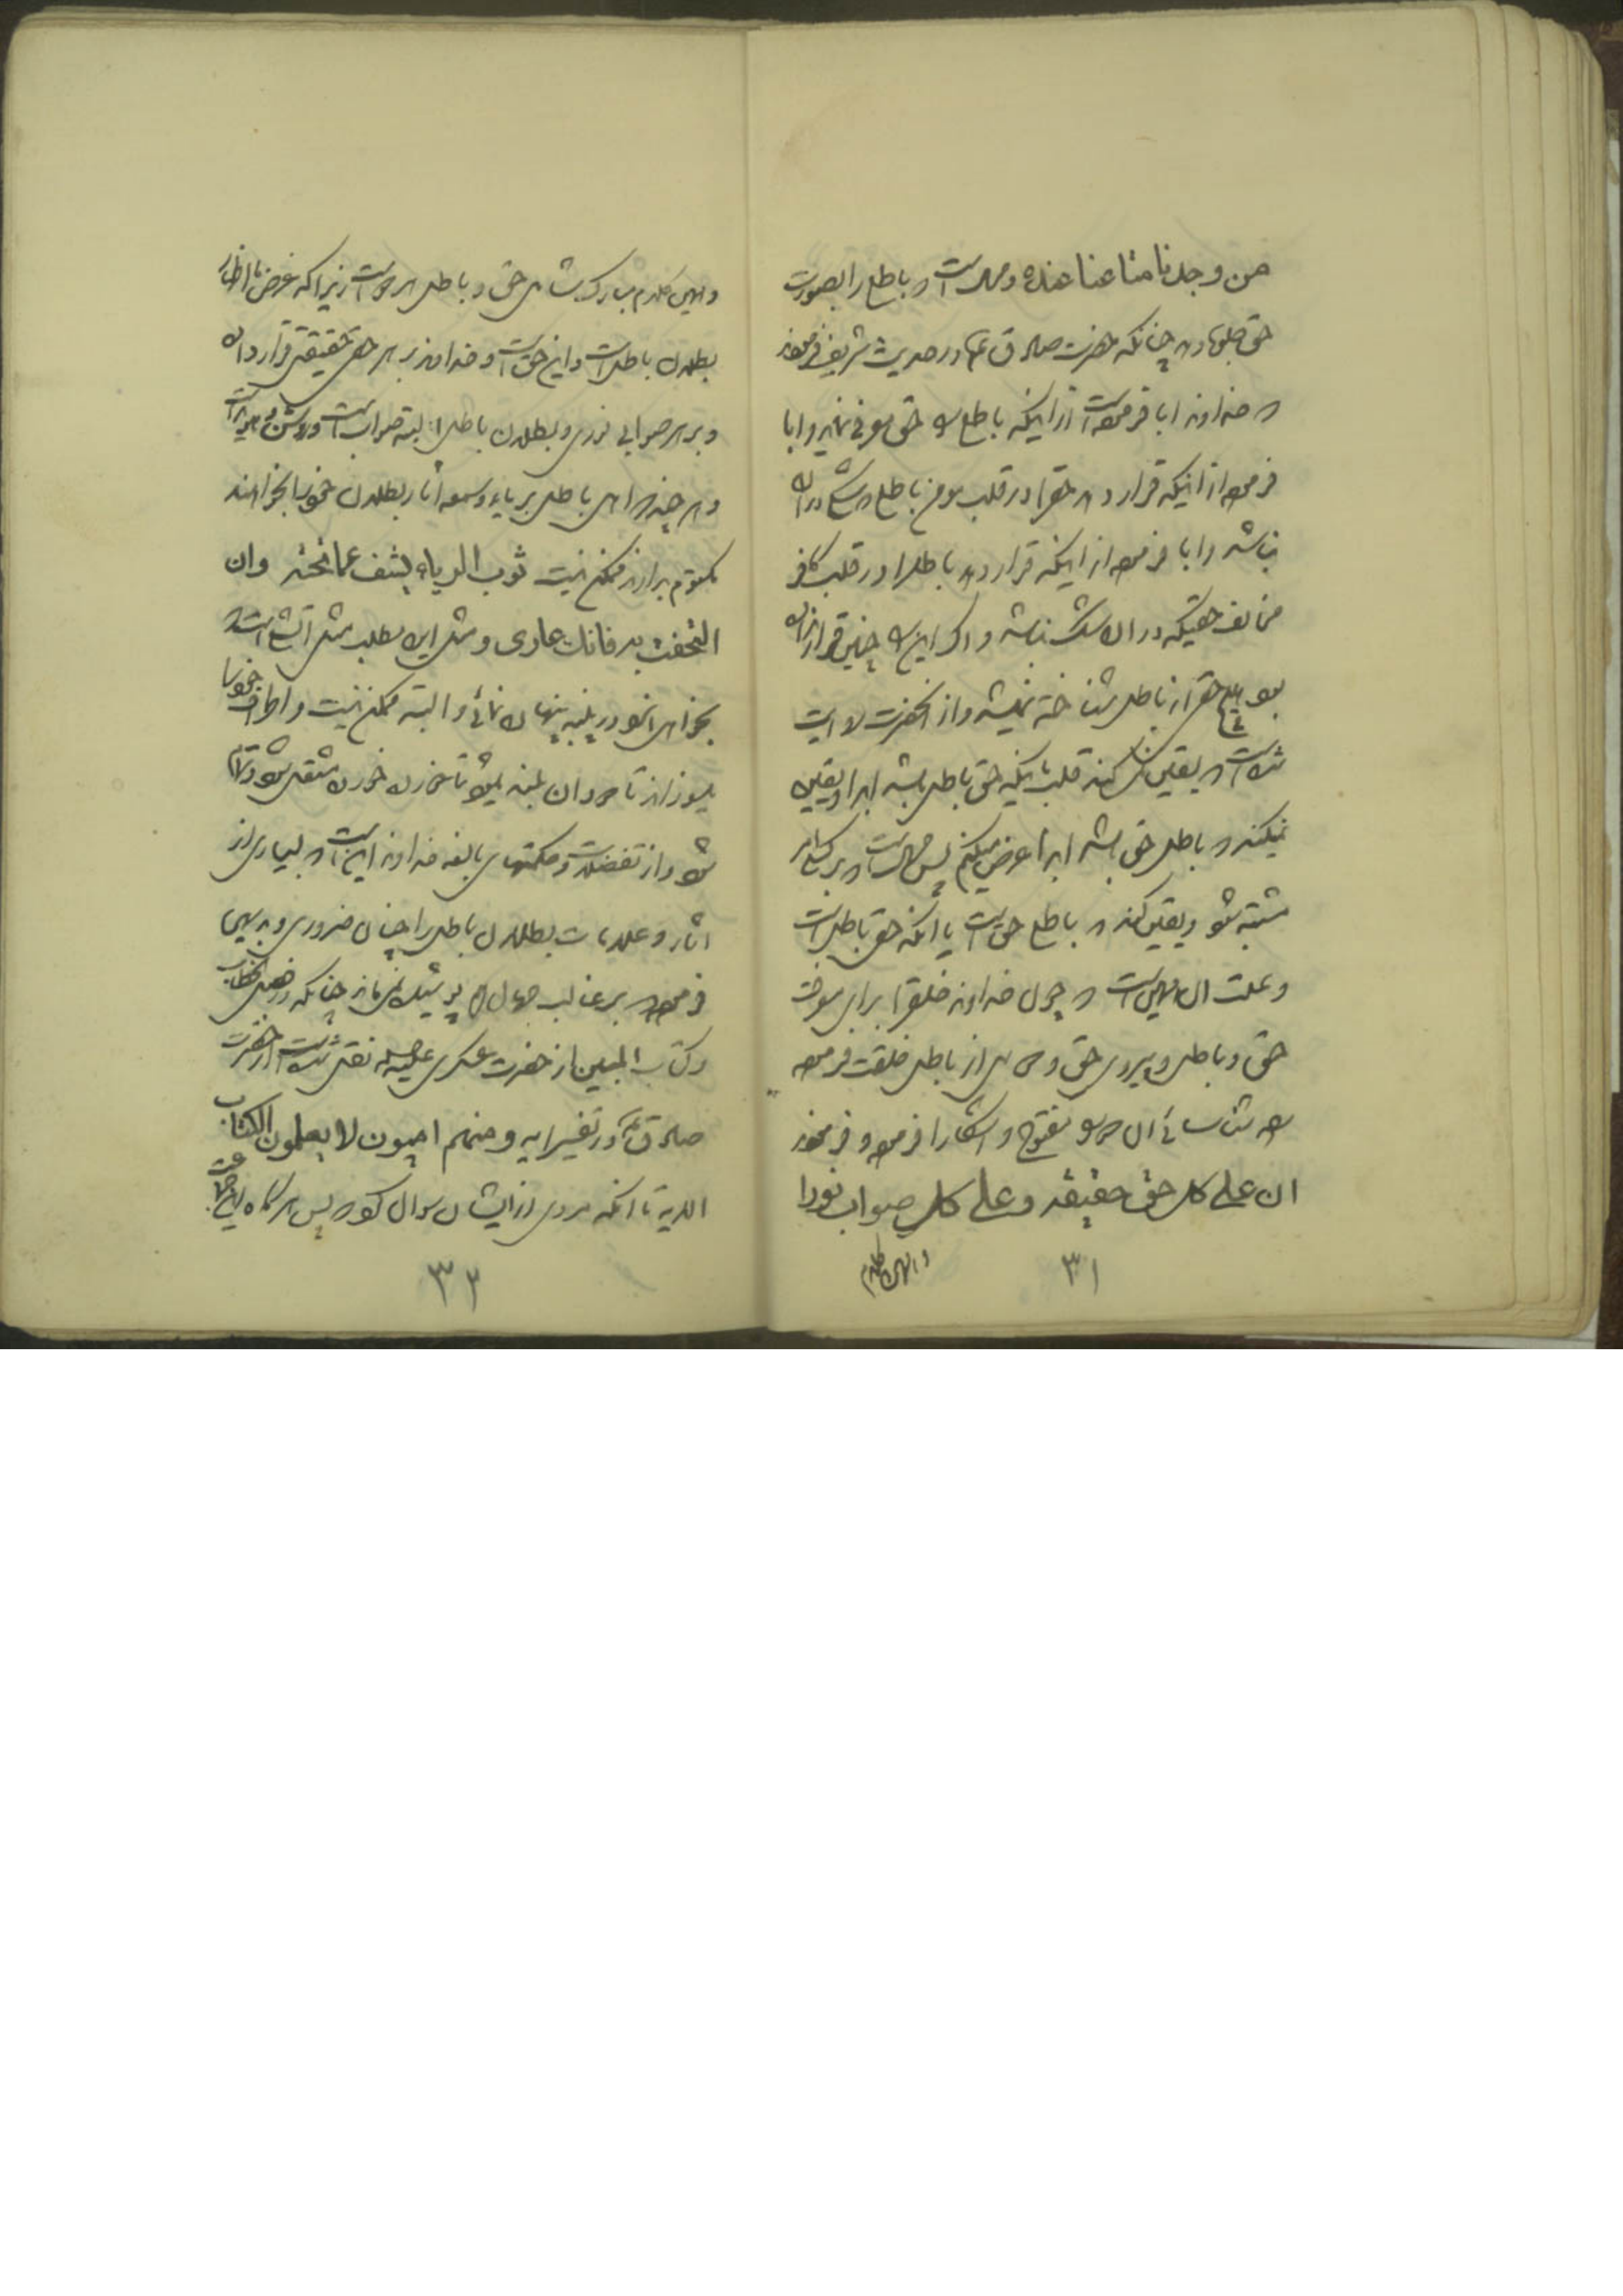 من وجدنا متاعنا عنده ومحال است که باطل را بصورت
حق جلوه دهد چنانکه حضرت صادق ع در حدیث شریف فرمودند
که خداوند ابا فرموده است از اینکه باطل را حق معرفی نماید و ابا
فرموده از اینکه قرار دهد حق را در قلب مومن باطل که شک در آن
نباشد و ابا فرموده از اینکه قرار دهد باطل را در قلب کافر
مخالف حقیکه در آن شک نباشد و اگر این را چنین قرار نداده
بود هیچ حق از باطل شناخته نمیشد و از آنحضرت روایت
شده است که یقین نمیکند قلب باینکه حق باطل باشد ابدا و یقین
نمیکند که باطل حق باشد ابدا عرض میکنم پس محال است که بر کسی امر
مشتبه شود و یقین کند که باطل حق است یا آنکه حق باطل است
و علت آن همین است که چون خداوند خلق را برای معرفت
حق و باطل و پیروی حق و دوری از باطل خلقت فرموده
راه شناسائی آن هر دو مفتوح و آشکارا فرموده و فرمودند
ان علی کل حق حقیقة و علی کل صواب نورا
و همین کلام
۳۱
و همین کلام مبارک شامل حق و باطل هر دو است زیرا که غرض ما اظهار
بطلان باطل است و این حق است و خداوند بر هر حقی حقیقتی قرار داده
و بر هر صوابی نوری و بطلان باطل البته صواب است و روشن و هویدا است
و هر چند اهل باطل بریاء و سمعه آثار بطلان خود را بخواهند
مکتوم بدارند ممکن نیست ثوب الریاء یشف عما تحته وان
التحفت به فانك عاری و مثل این مطلب مثل آتش است که
بخواهی آنرا در پنبه پنهان نمائی و البته ممکن نیست و اطراف خود را
بسوزاند تا خود آن پنبه نیز تا خورده خورده مشتعل شود و تمام
شود و از تفضلات و حکمتهای بالغه خداوند این است که بسیاری از
آثار و علامات بطلان باطل را چنان ضروری و بدیهی
فرموده که بر غالب جهال هم پوشیده نمی‌ماند چنانکه در فصل الخطاب
و کتاب المبین از حضرت عسکری علیه السلام نقل شده است از حضرت
صادق ع در تفسیر آیه ومنهم امیون لا یعلمون الکتاب
الایه تا آنکه مردی از ایشان سوال کرد که پس هر گاه این جماعت
۳۲